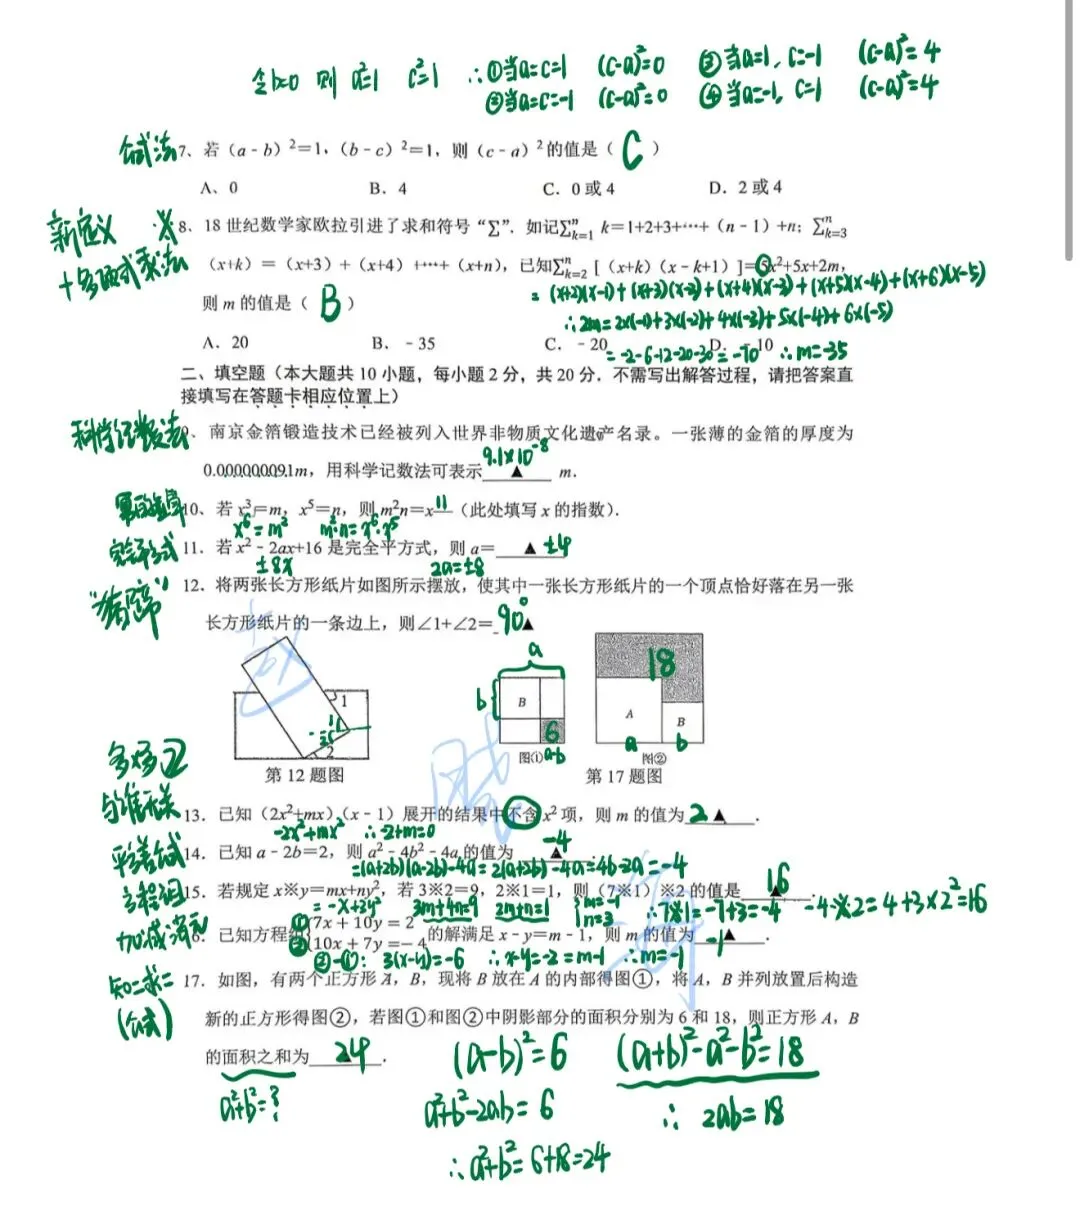 令b=0 则 a²=1 c²=1 ∴①当a=c=1 (c-a)²=0 ③当a=1,c=-1 (c-a)²=4
②当a=c=-1 (c-a)²=0 ④当a=-1,c=1 (c-a)²=4
7、若（a-b）²=1，（b-c）²=1，则（c-a）²的值是（ C ）
A、0 B．4 C．0或4 D．2或4
新定义
8、18世纪数学家欧拉引进了求和符号“∑”．如记∑ⁿₖ₌₁ k=1+2+3+⋯+（n-1）+n；∑ⁿₖ₌₃
+多项式乘法
（x+k）=（x+3）+（x+4）+⋯+（x+n），已知∑ⁿₖ₌₂[（x+k）（x-k+1）]=5x²+5x+2m，
=(x+2)(x-1)+(x+3)(x-2)+(x+4)(x-3)+(x+5)(x-4)+(x+6)(x-5)
则m的值是（ B ）
∴2m=2×(-1)+3×(-2)+4×(-3)+5×(-4)+6×(-5)
A．20 B．-35 C．-20 D．-10
=-2-6-12-20-30=-70 ∴m=-35
二、填空题（本大题共10小题，每小题2分，共20分．不需写出解答过程，请把答案直
接填写在答题卡相应位置上）
科学记数法
9、南京金箔锻造技术已经被列入世界非物质文化遗产名录。一张薄的金箔的厚度为
0.000000091m，用科学记数法可表示 9.1×10⁻⁸ ▲ m．
10、若x³=m，x⁵=n，则m²n=x 11 （此处填写x的指数）．
x⁶=m² m²·n=x⁶·x⁵
11．若x²-2ax+16是完全平方式，则a= ▲ ±4
±8x 2a=±8
12．将两张长方形纸片如图所示摆放，使其中一张长方形纸片的一个顶点恰好落在另一张
“猪蹄”
长方形纸片的一条边上，则∠1+∠2= 90° ▲
1
2
第12题图
a
b
B
6
a-b
图①
18
A
B
a
b
图②
第17题图
与谁无关
13．已知（2x²+mx）（x-1）展开的结果中不含x²项，则m的值为 2 ▲ ．
-2x²+mx² ∴-2+m=0
14．已知a-2b=2，则a²-4b²-4a的值为 -4 ▲
=(a+2b)(a-2b)-4a=2(a+2b)-4a=4b-2a=-4
方程组
15．若规定x※y=mx+ny²，若3※2=9，2※1=1，则（7※1）※2的值是 16 ▲ ．
=-x+3y² 3m+4n=9 2m+n=1 {m=-1 n=3 ∴7※1=-7+3=-4 -4※2=4+3×2²=16
加减消元
16．已知方程组 ①7x+10y=2 ②10x+7y=-4 的解满足x-y=m-1，则m的值为 -1 ▲ ．
②-①: 3(x-y)=-6 ∴x-y=-2=m-1 ∴m=-1
知二求二
17．如图，有两个正方形A，B，现将B放在A的内部得图①，将A，B并列放置后构造
新的正方形得图②，若图①和图②中阴影部分的面积分别为6和18，则正方形A，B
的面积之和为 24 ▲ ．
(a-b)²=6 (a+b)²-a²-b²=18
a²+b²=? a²+b²-2ab=6 ∴ 2ab=18
∴a²+b²=6+18=24